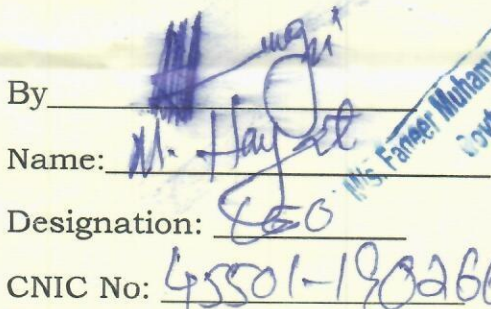 By
Name: M. Hayat
Designation: CEO
CNIC No: 45501-190266
M/s. Faqeer Muhamm
Govt